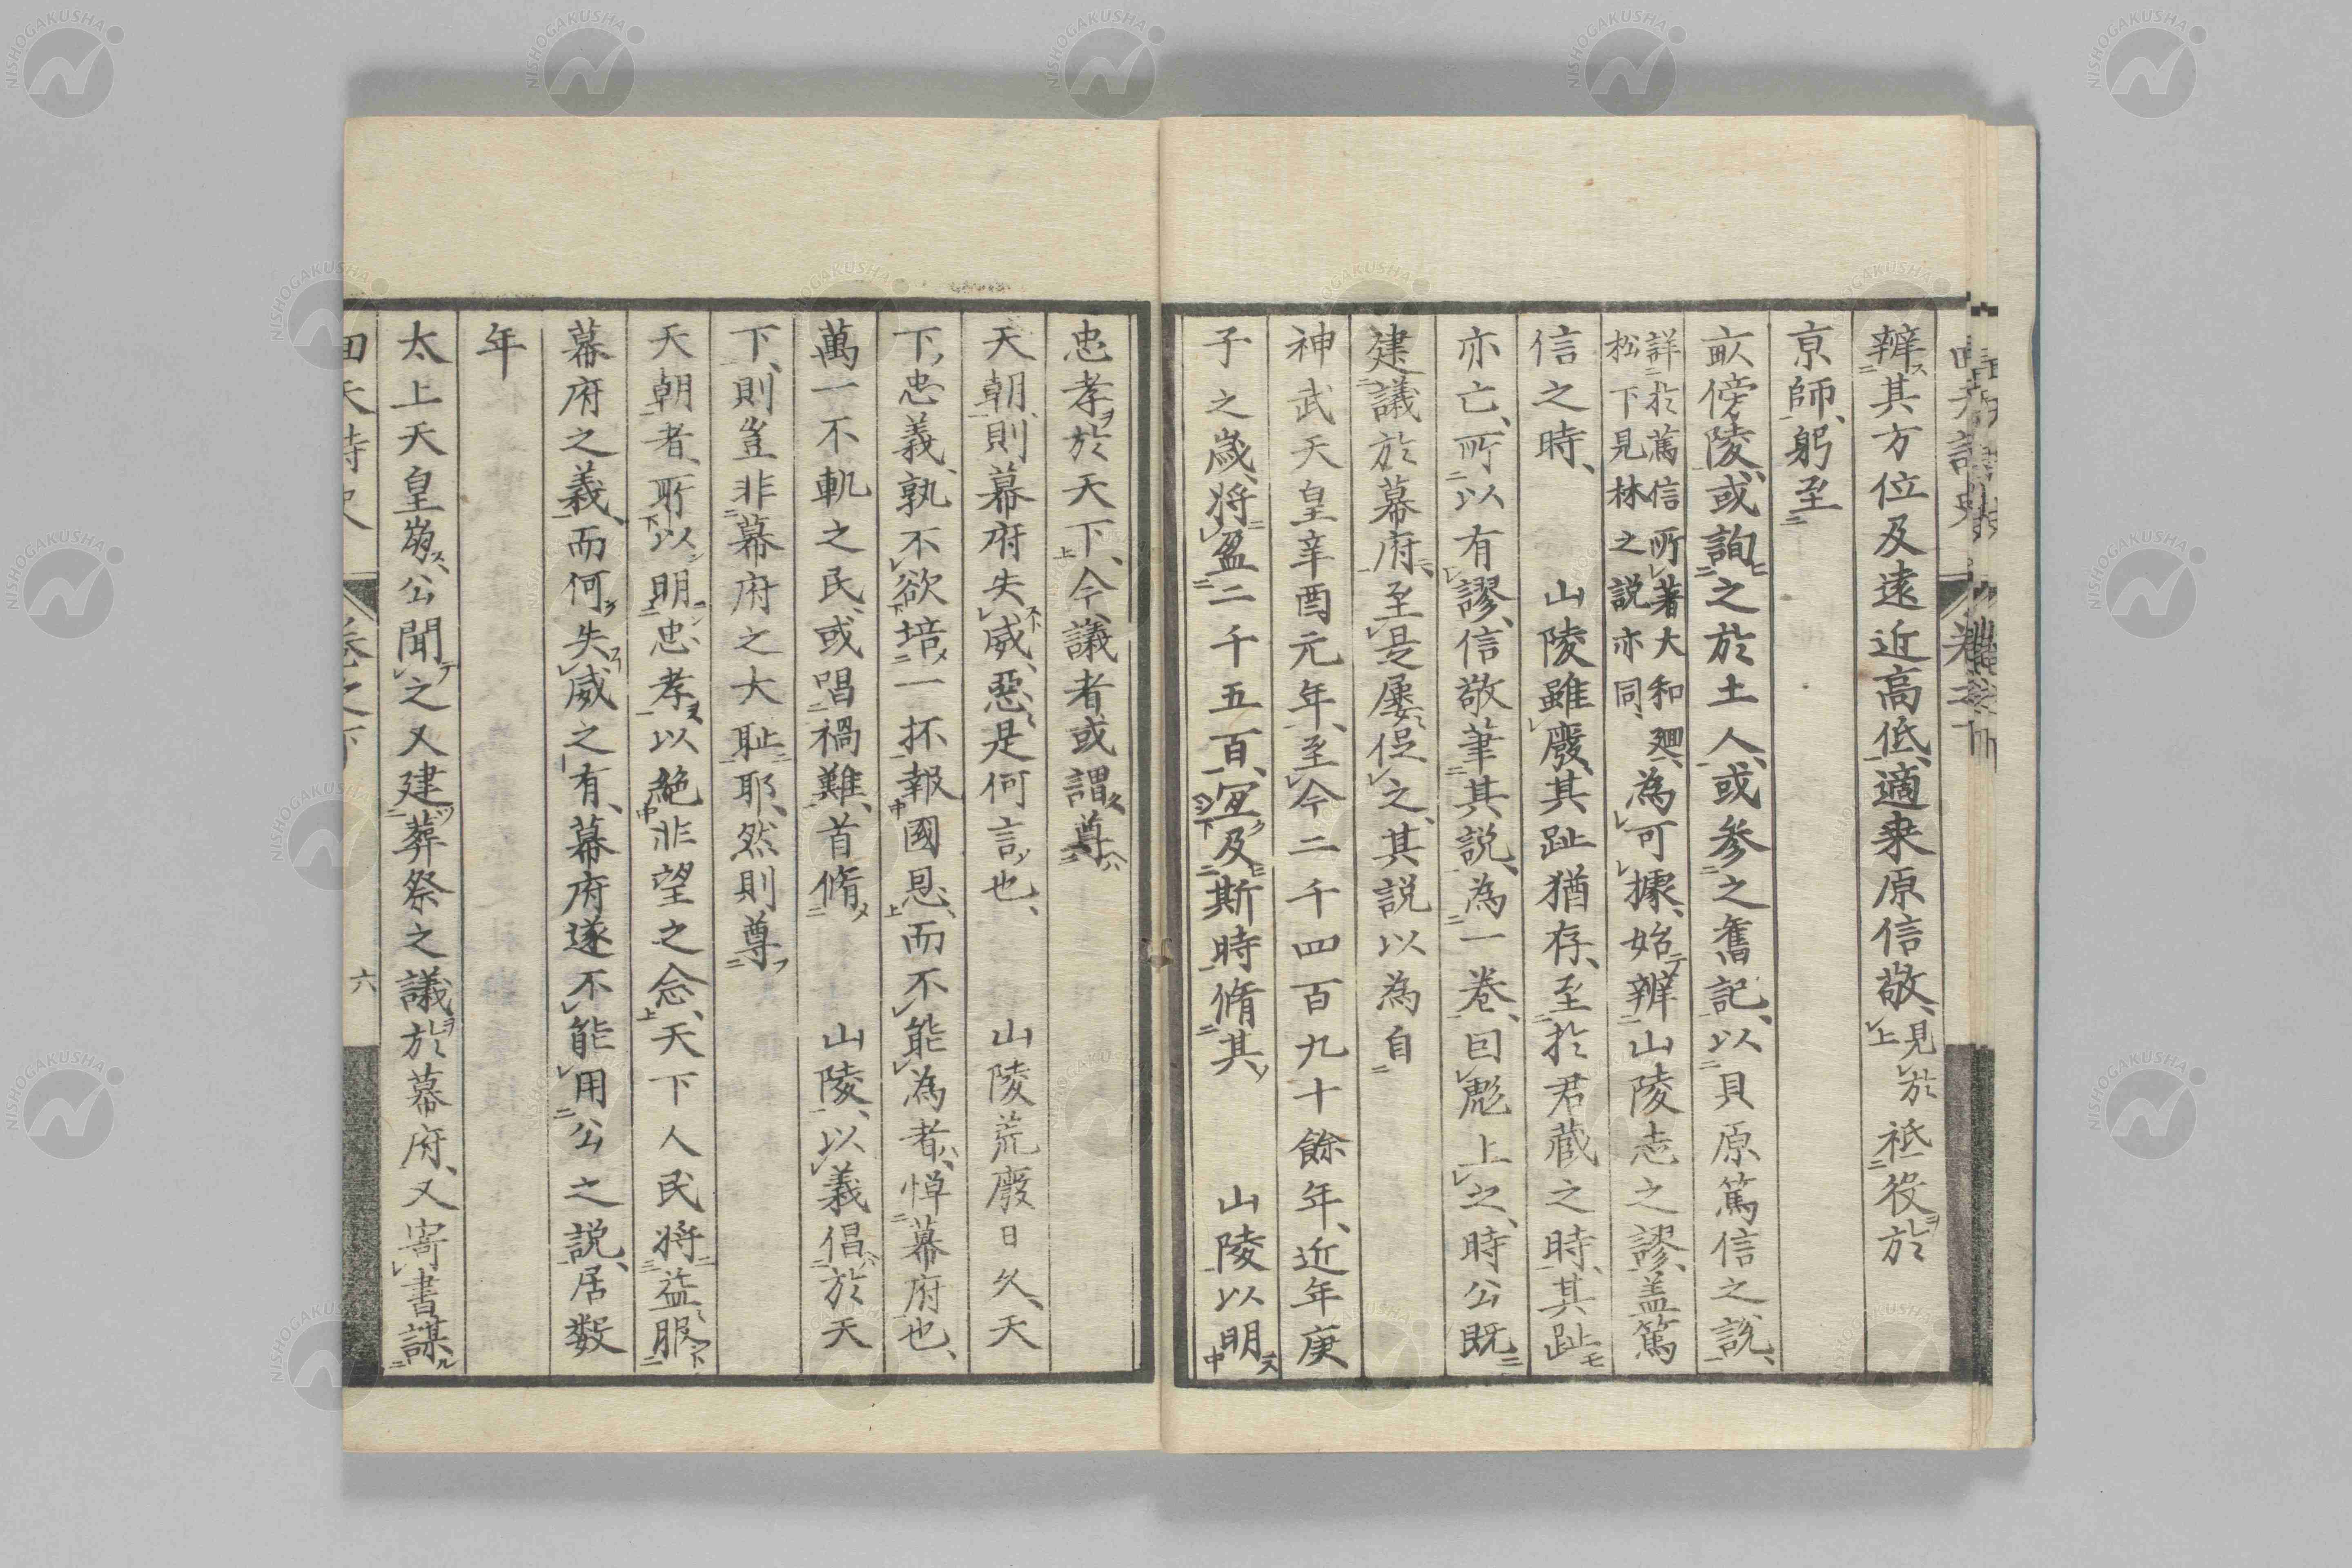 辨其方位及遠近高低、適桒原信敬、見於祗役於
京師、躬至
畝傍陵、或詢之於土人、或参之舊記、以貝原篤信之説、
詳於篤信所著大和廻、
松下見林之説亦同、
為可據、始辨山陵志之謬、盖篤
信之時、　山陵雖廢、其趾猶存、至於君藏之時、其趾
亦亡、所以有謬、信敬筆其説、為一卷、因彪上之、時公既
建議於幕府、至是屡促之、其説以為自
神武天皇辛酉元年、至今二千四百九十餘年、近年庚
子之歳、將盈二千五百、宜及斯時脩其　山陵以明
忠孝於天下、今議者或謂尊
天朝、則幕府失威、惡是何言也、　山陵荒廢日久、天
下忠義、孰不欲培一抔報國恩、而不能為者、憚幕府也、
萬一不軌之民、或唱禍難、首脩　山陵、以義倡於天
下、則豈非幕府之大耻耶、然則尊
天朝者、所以明忠孝以絶非望之念、天下人民將益服
幕府之義、而何失威之有、幕府遂不能用公之説、居数
年
太上天皇崩、公聞之又建葬祭之議於幕府、又寄書謀
回天詩史
卷之下
六